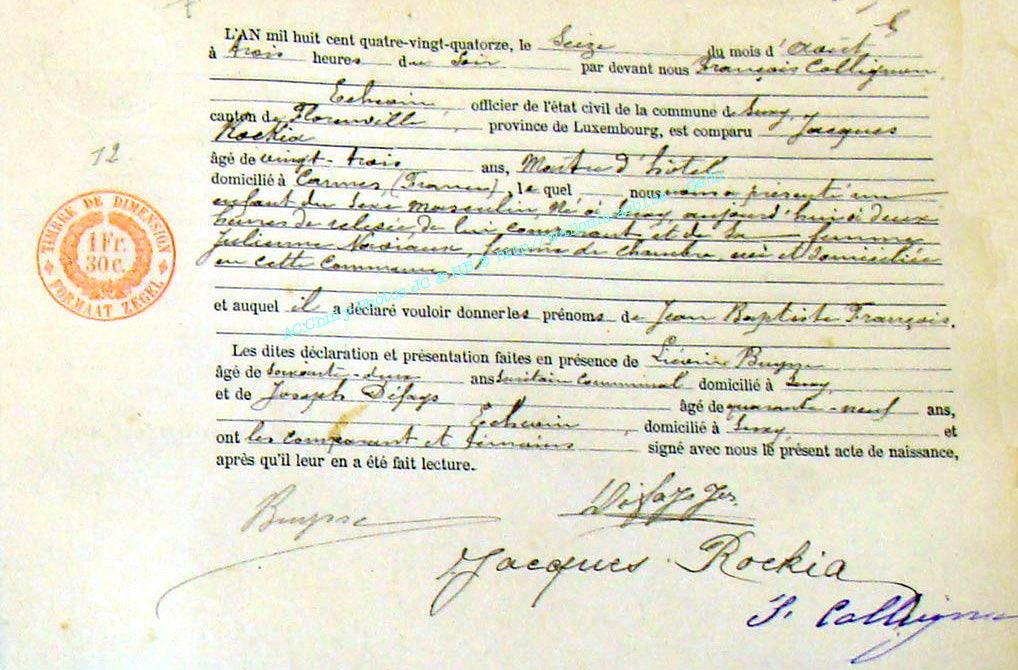 L'AN mil huit cent quatre-vingt-quatorze, le Seize du mois d'Août
à trois heures du Soir par devant nous François Collignon
Echevin, officier de l'état civil de la commune de Suxy,
canton de Florenville, province de Luxembourg, est comparu Jacques
Rockia
âgé de vingt-trois ans, Maître d'hôtel
domicilié à Cannes (France), le quel nous a présenté un
enfant du sexe masculin, Né à Suxy, aujourd'hui à deux
heures de relevée, de lui comparant et de sa femme
Julienne Femme de chambre, née et domiciliée
en cette Commune
et auquel il a déclaré vouloir donner les prénoms de Jean Baptiste François.
Les dites déclaration et présentation faites en présence de Buysse
âgé de soixante-deux ans communal domicilié à Suxy
et de Joseph Défays âgé de quarante-neuf ans,
Echevin, domicilié à Suxy, et
ont les comparant et témoins signé avec nous le présent acte de naissance,
après qu'il leur en a été fait lecture.
Buysse
Défays Jos.
Jacques Rockia
F. Collignon
12
TIMBRE DE DIMENSION
1 Fr.
30 c.
FORMAAT ZEGEL